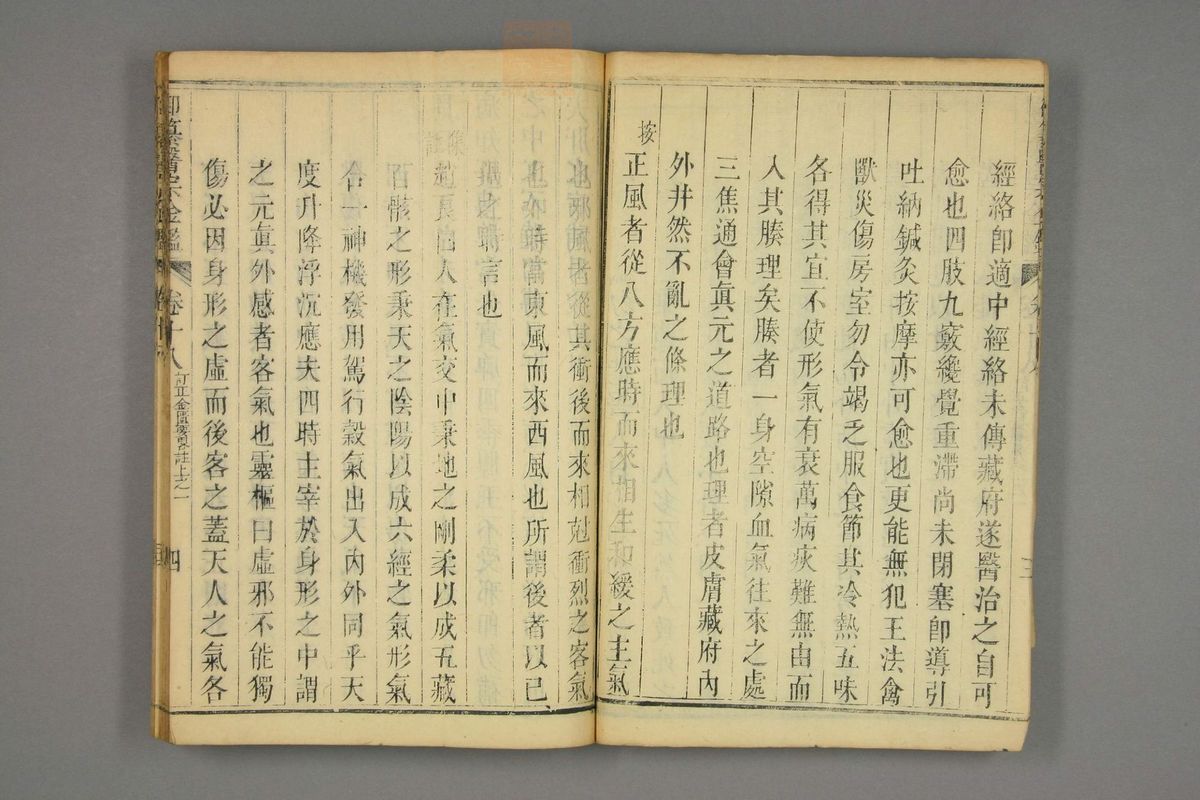 經絡卽適中經絡未傳藏府遂醫治之自可
愈也四肢九竅纔覺重滯尚未閉塞卽導引
吐納鍼灸按摩亦可愈也更能無犯王法禽
獸災傷房室勿令竭乏服食節其冷熱五味
各得其宜不使形氣有衰萬病疢難無由而
入其腠理矣腠者一身空隙血氣往來之處
三焦通會眞元之道路也理者皮膚藏府內
外井然不亂之條理也
按
正風者從八方應時而來相生和緩之主氣
也從其衝後而來相尅衝烈之客氣
東風而來西風也所謂後者以已
言也
人在氣交中秉地之剛柔以成五藏
百骸之形秉天之陰陽以成六經之氣形氣
合一神機發用駕行穀氣出入內外同乎天
度升降浮沉應夫四時主宰於身形之中謂
之元眞外感者客氣也靈樞曰虛邪不能獨
傷必因身形之虛而後客之蓋天人之氣各
御纂醫宗金鑑
卷十八
訂正金匱要畧註上之一
四
三